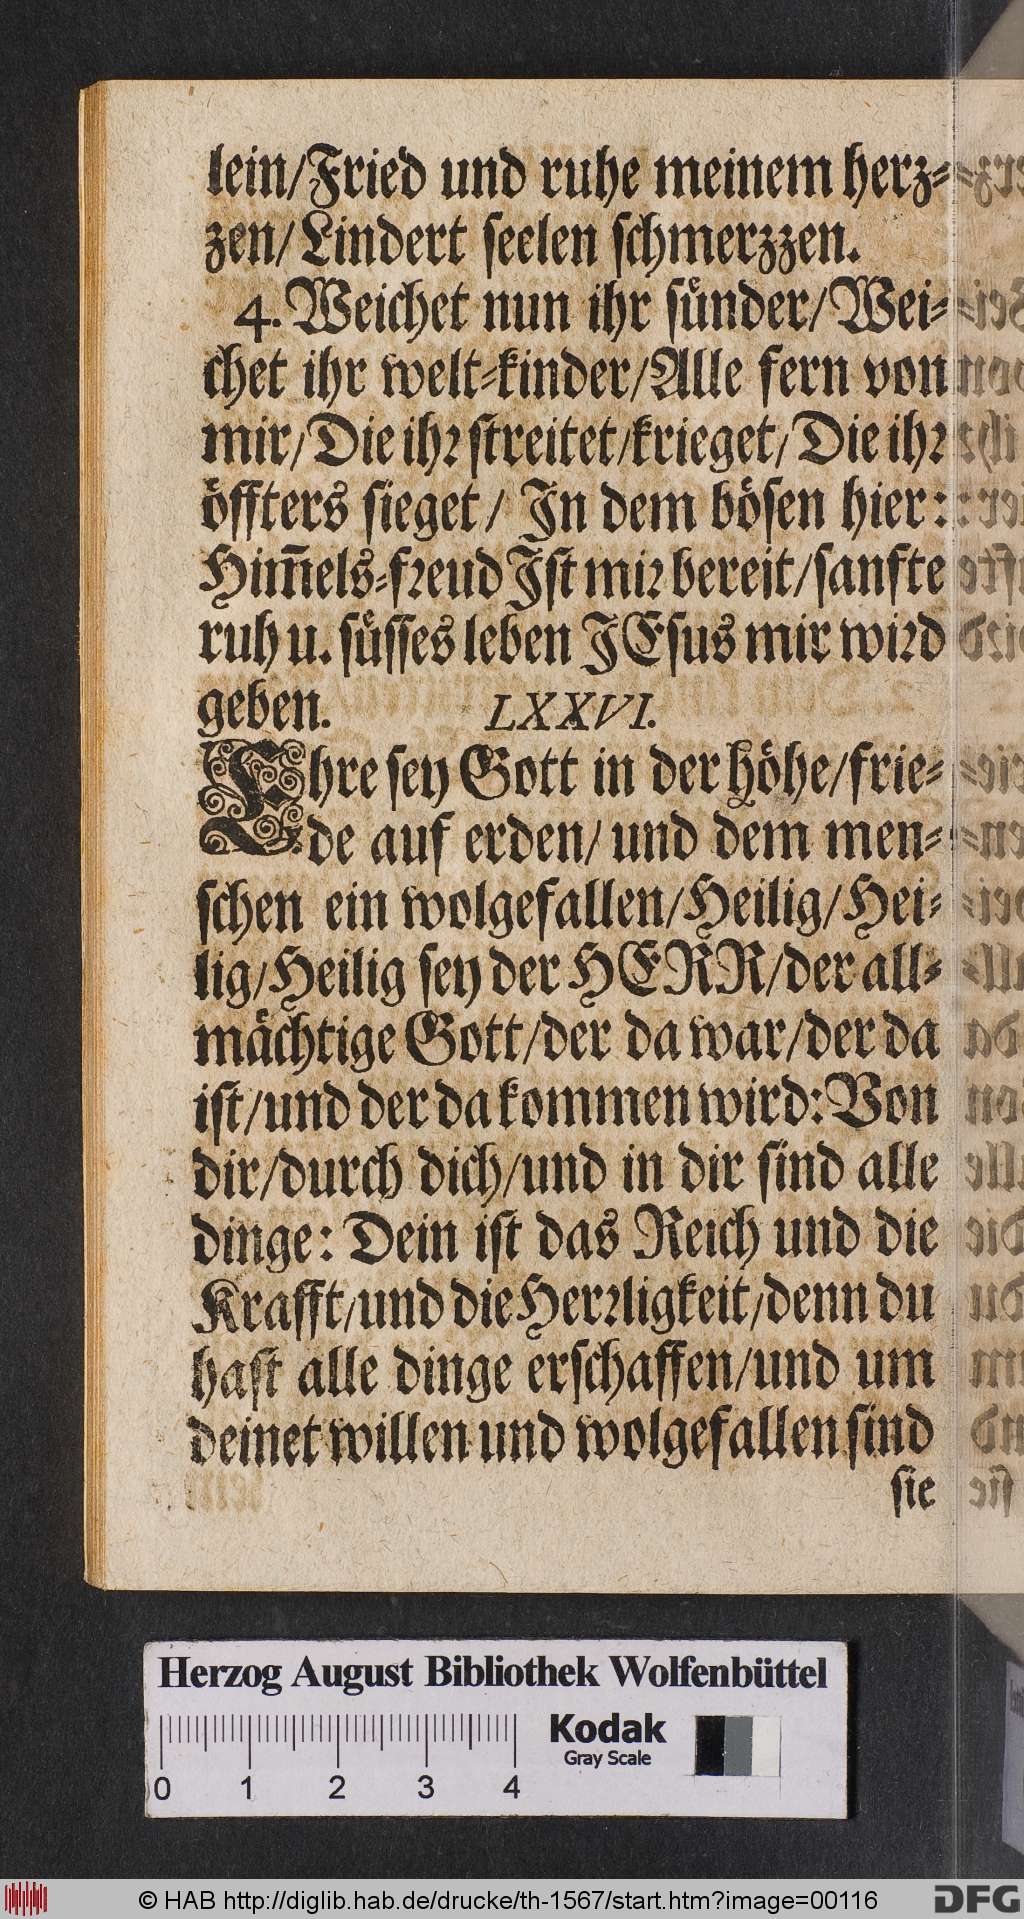 lein/Fried und ruhe meinem herz-
zen/Lindert seelen schmerzzen.
4. Weichet nun ihr suͤnder/Wei-
chet ihr welt-kinder/Alle fern von
mir/Die ihr streitet/krieget/Die ihr
oͤffters sieget/ In dem boͤsen hier:
Him̅els-freud Ist mir bereit/sanfte
ruh u. suͤsses leben JEsus mir wird
geben. LXXVI.
Ehre sey Gott in der hoͤhe/frie-
de auf erden/und dem men-
schen ein wolgefallen/Heilig/Hei-
lig/Heilig sey der HERR/der all-
maͤchtige Gott/der da war/der da
ist/und der da kommen wird: Von
dir/durch dich/und in dir sind alle
dinge: Dein ist das Reich und die
Krafft/und die Herrligkeit/denn du
hast alle dinge erschaffen/und um
deinet willen und wolgefallen sind
sie
Herzog August Bibliothek Wolfenbüttel
Kodak
Gray Scale
0 1 2 3 4
© HAB http://diglib.hab.de/drucke/th-1567/start.htm?image=00116
DFG